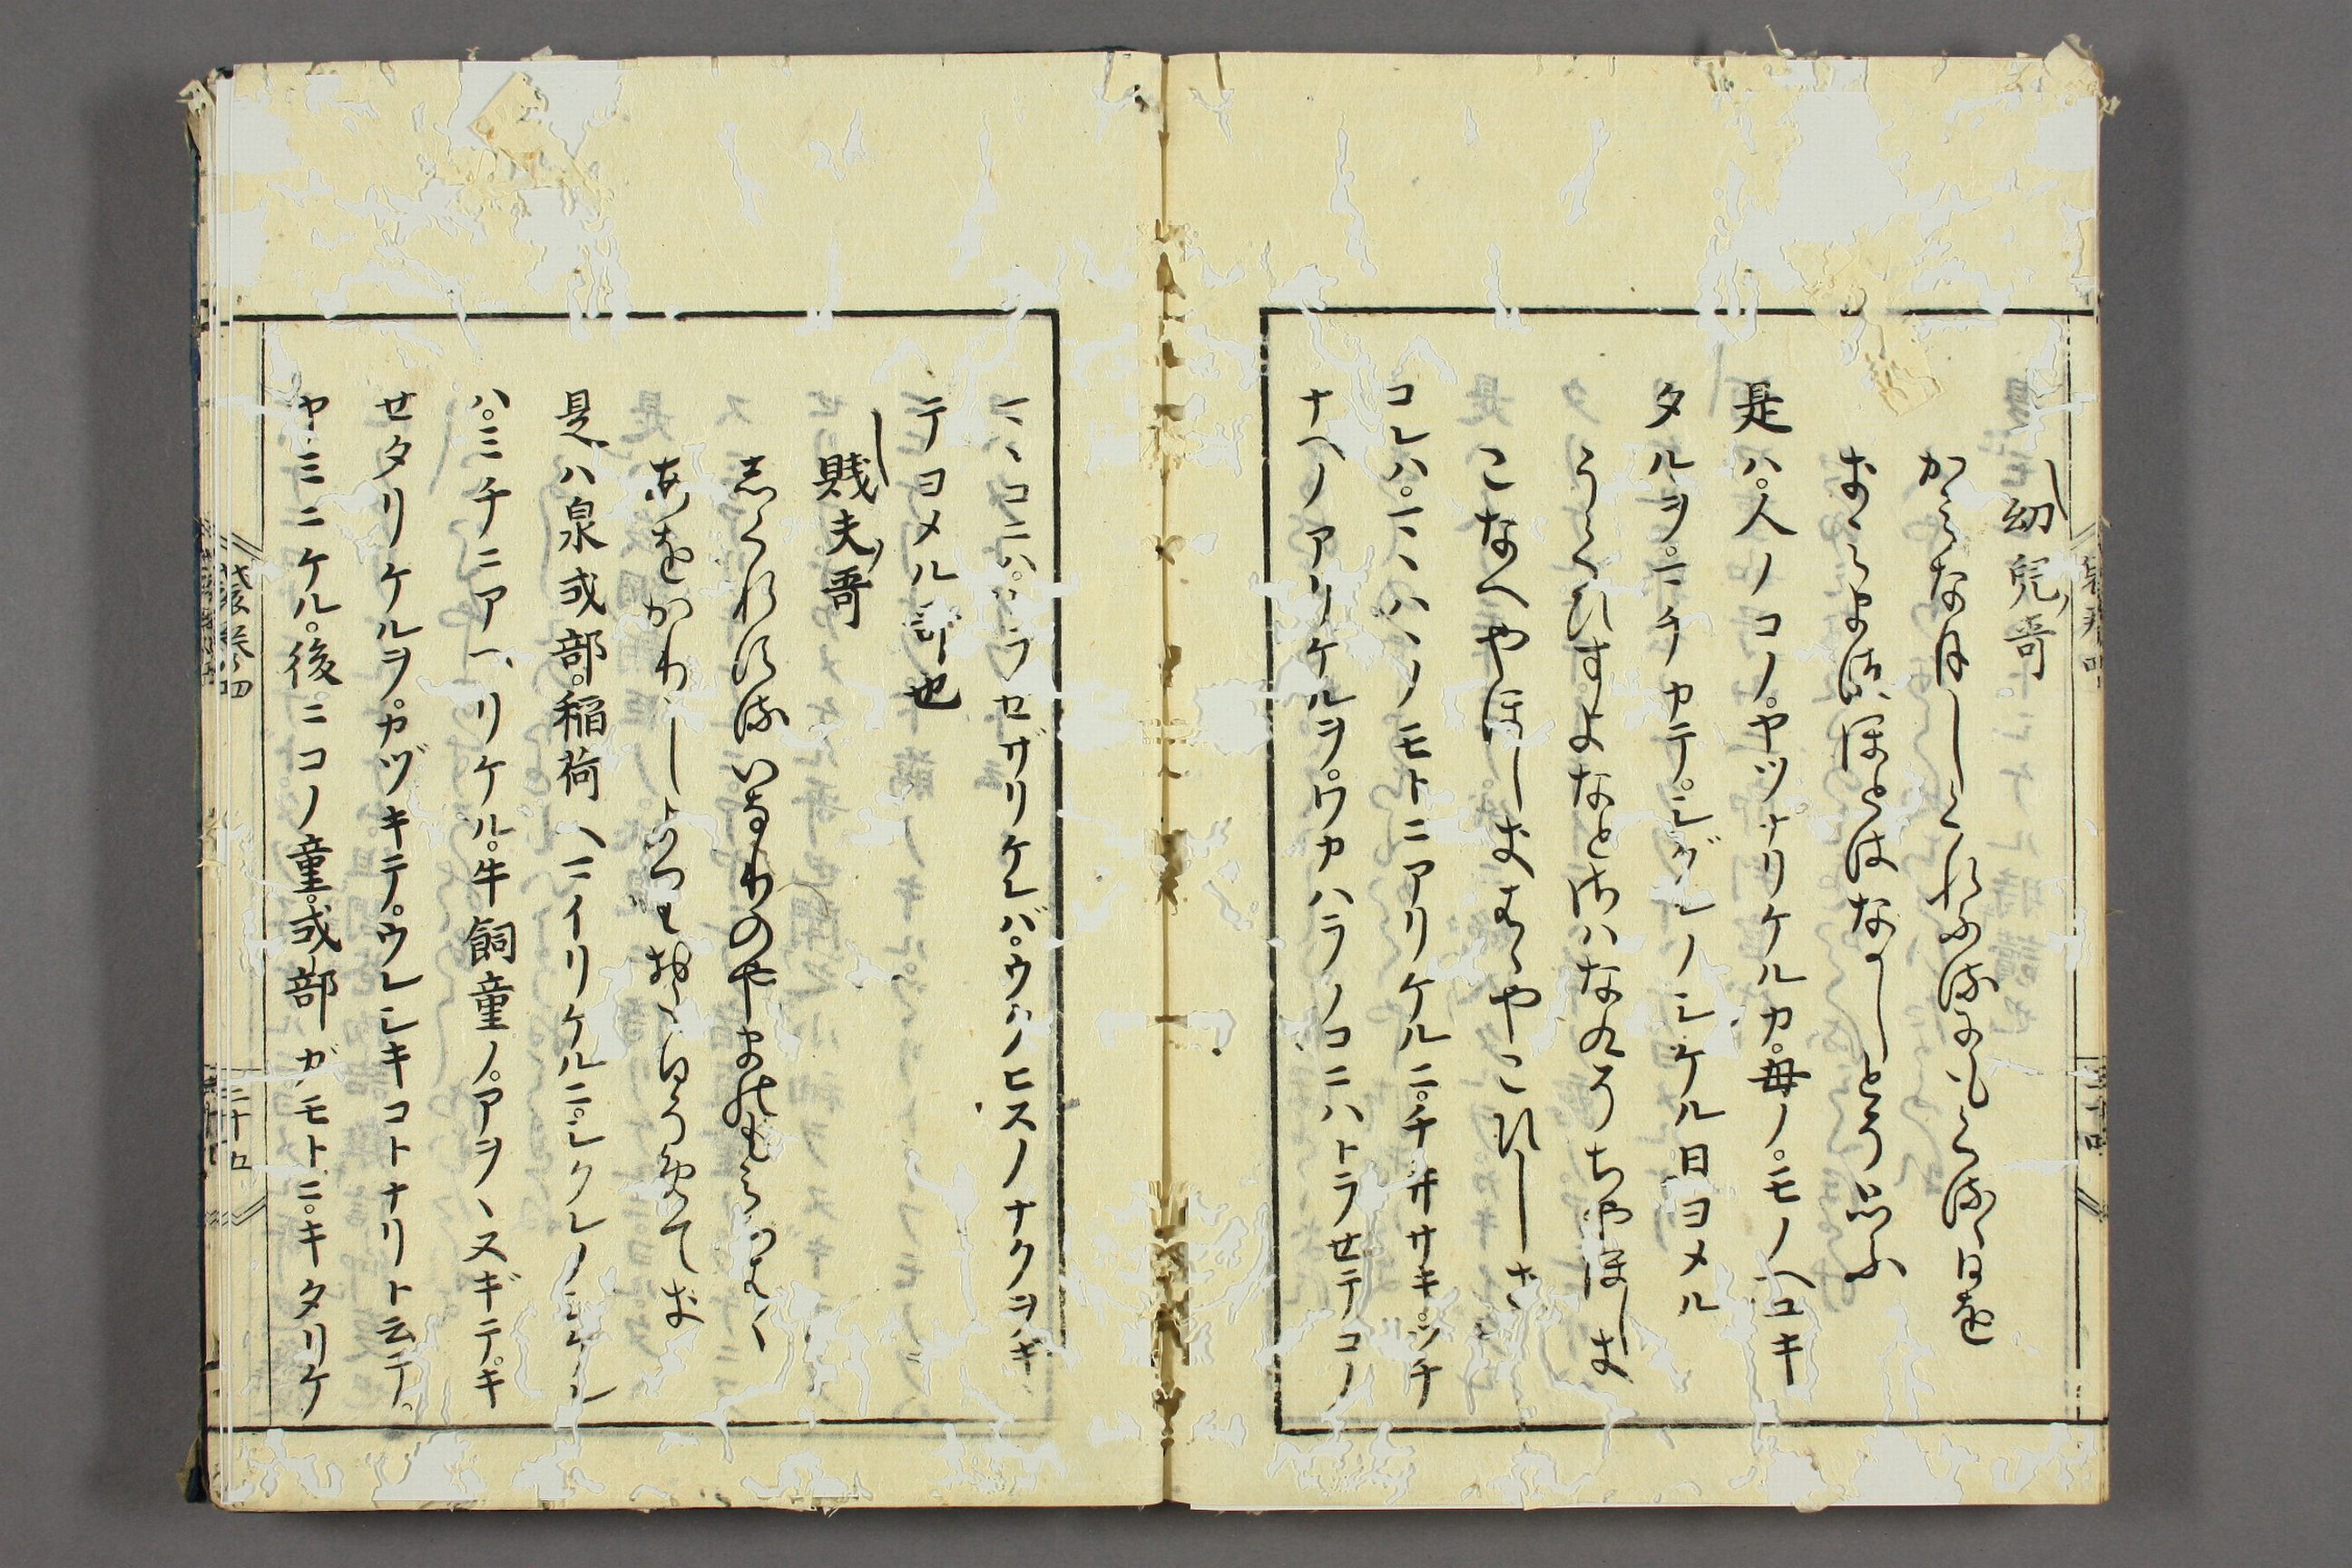 一 幼児哥
かミな月しくれふるにもくるゝ日を
きミまつほとはなかしとそ思ふ
是ハ。人ノコノ。ヤツナリケルカ。母ノ。モノヘユキ
タルヲ。マチカテ。シグレノシケル日ヨメル
うくひすよなとさハなくそちやほしき
こなへやほしきはゝやこひしき
コレハ。マヽハヽノモトニアリケルニ。チヰサキ。ツチ
ナヘノアリケルヲ。ワカハラノコニハトラセテコノ
マヽコニハ。トラセザリケレバ。ウグヒスノナクヲキ
テヨメル哥也
一 賤夫哥
しくれするいなりの山のもみちはゝ
あをかりしよりおもひそめてき
是ハ泉式部。稲荷ヘマイリケルニ。シクレノシケル
ハ。ミチニアヘリケル。牛飼童ノ。アヲヽスギテ。キ
セタリケルヲ。カヅキテ。ウレシキコトナリト云テ。
ヤミニケル。後ニコノ童。式部ガモトニ。キタリケ
袋巻四
二十五